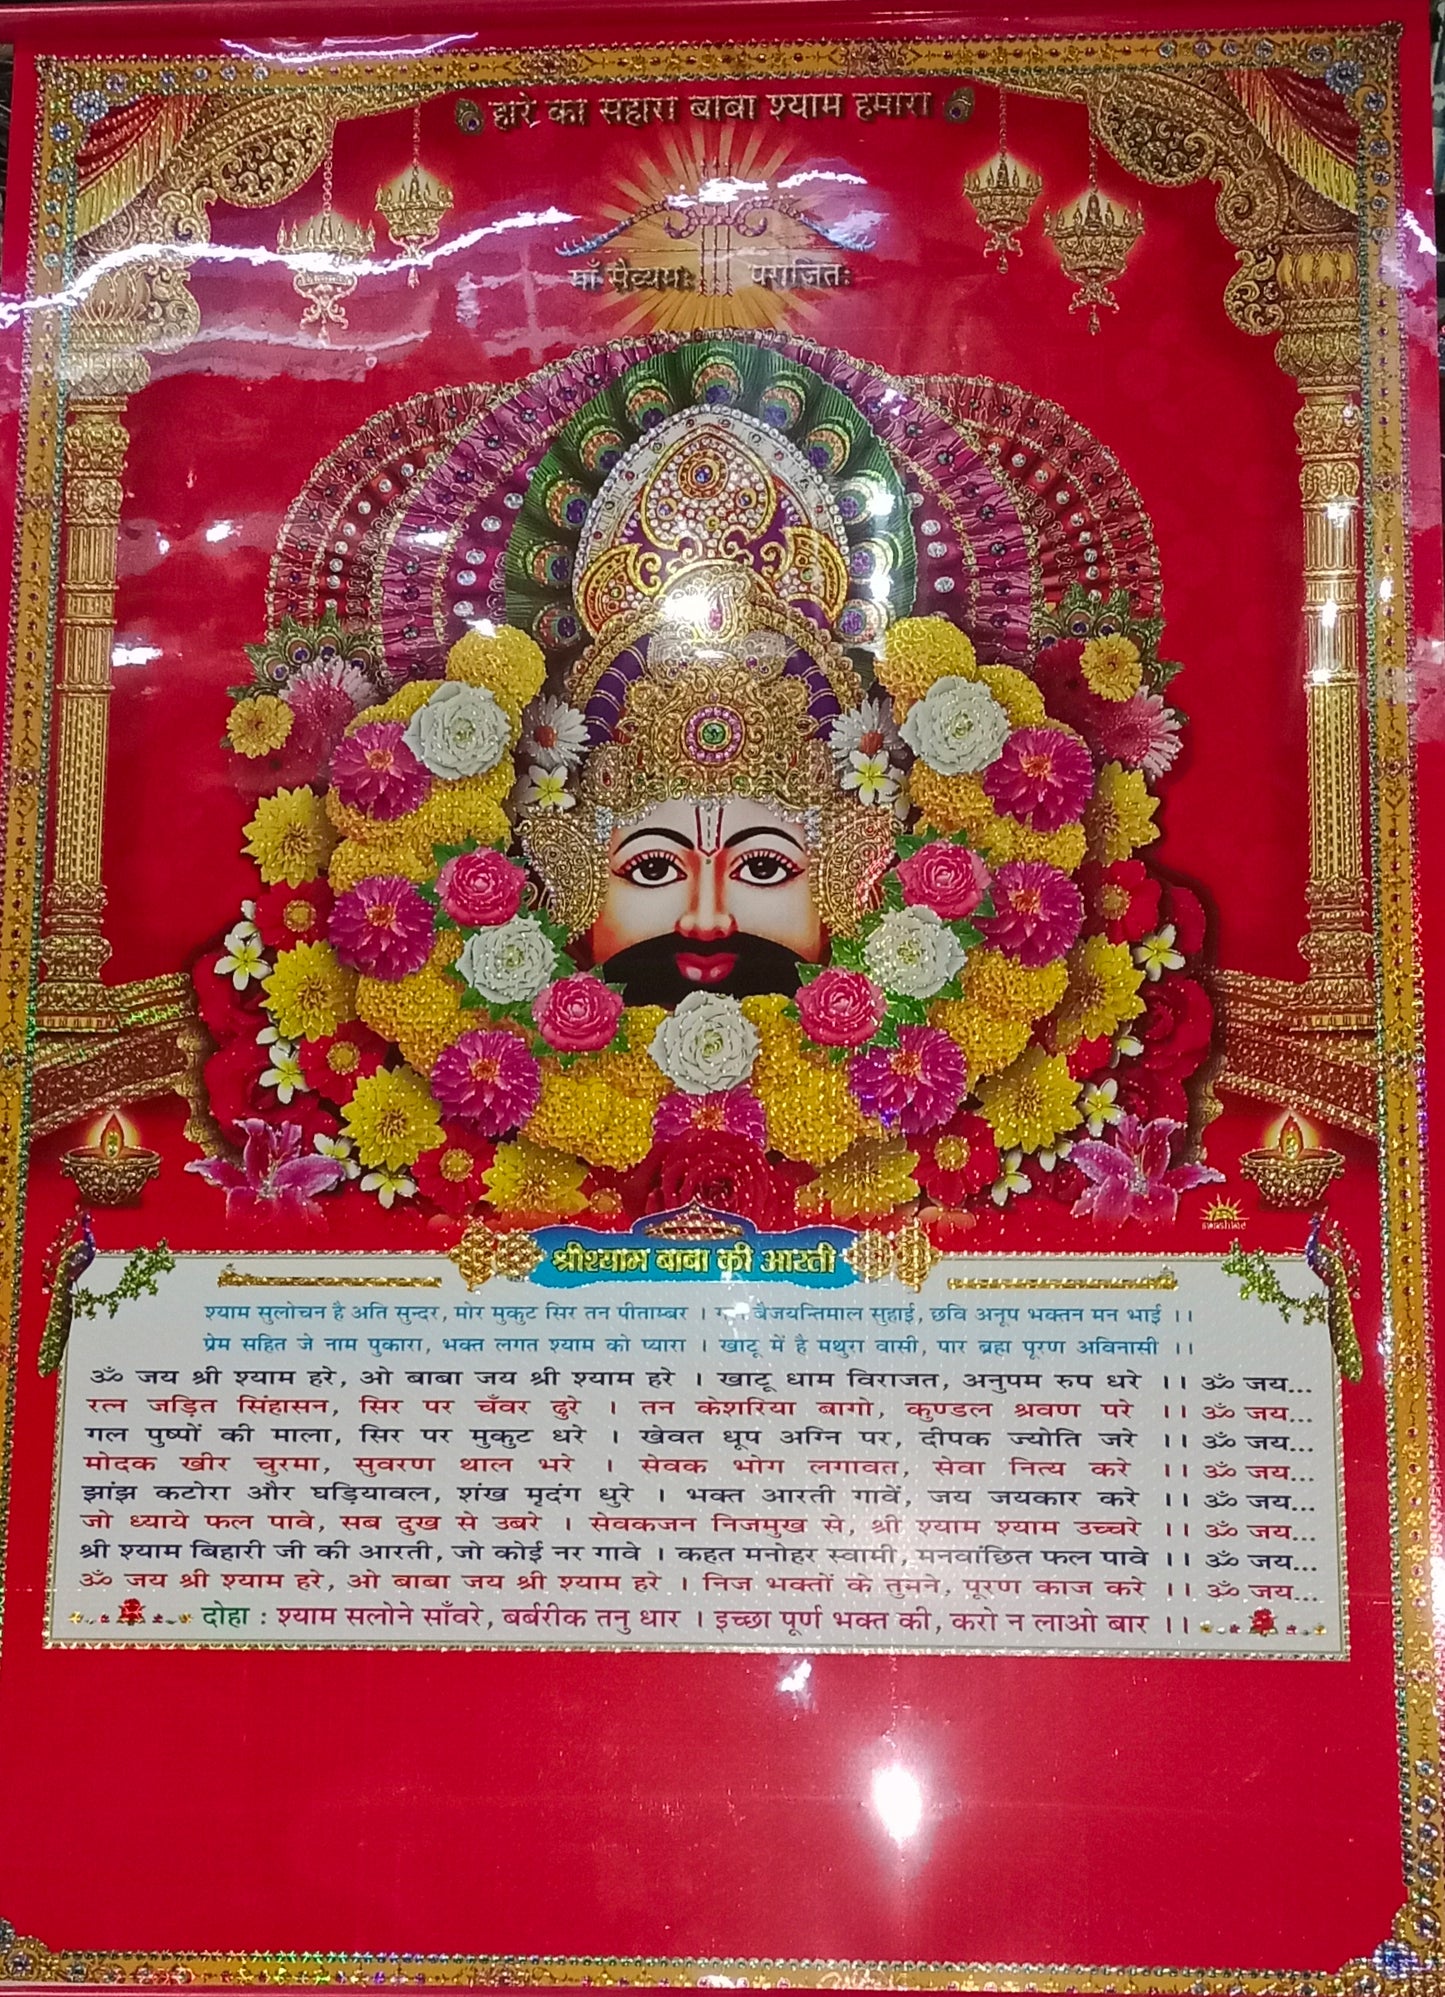 हारे का सहारा बाबा श्याम हमारा
माँ सैव्यमः पराजितः
sunshine
श्रीश्याम बाबा की आरती
श्याम सुलोचन है अति सुन्दर, मोर मुकुट सिर तन पीताम्बर । बैजयन्तिमाल सुहाई, छवि अनूप भक्तन मन भाई ।।
प्रेम सहित जे नाम पुकारा, भक्त लगत श्याम को प्यारा । खाटू में है मथुरा वासी, पार ब्रह्म पूरण अविनासी ।।
ॐ जय श्री श्याम हरे, ओ बाबा जय श्री श्याम हरे । खाटू धाम विराजत, अनुपम रुप धरे ।। ॐ जय...
रत्न जड़ित सिंहासन, सिर पर चँवर ढुरे । तन केशरिया बागो, कुण्डल श्रवण परे ।। ॐ जय...
गल पुष्पों की माला, सिर पर मुकुट धरे । खेवत धूप अग्नि पर, दीपक ज्योति जरे ।। ॐ जय...
मोदक खीर चुरमा, सुवरण थाल भरे । सेवक भोग लगावत, सेवा नित्य करे ।। ॐ जय...
झांझ कटोरा और घड़ियावल, शंख मृदंग धुरे । भक्त आरती गावें, जय जयकार करे ।। ॐ जय...
जो ध्याये फल पावे, सब दुख से उबरे । सेवकजन निजमुख से, श्री श्याम श्याम उच्चरे ।। ॐ जय...
श्री श्याम बिहारी जी की आरती, जो कोई नर गावे । कहत मनोहर स्वामी, मनवांछित फल पावे ।। ॐ जय...
ॐ जय श्री श्याम हरे, ओ बाबा जय श्री श्याम हरे । निज भक्तों के तुमने, पूरण काज करे ।। ॐ जय...
दोहा : श्याम सलोने साँवरे, बर्बरीक तनु धार । इच्छा पूर्ण भक्त की, करो न लाओ बार ।।